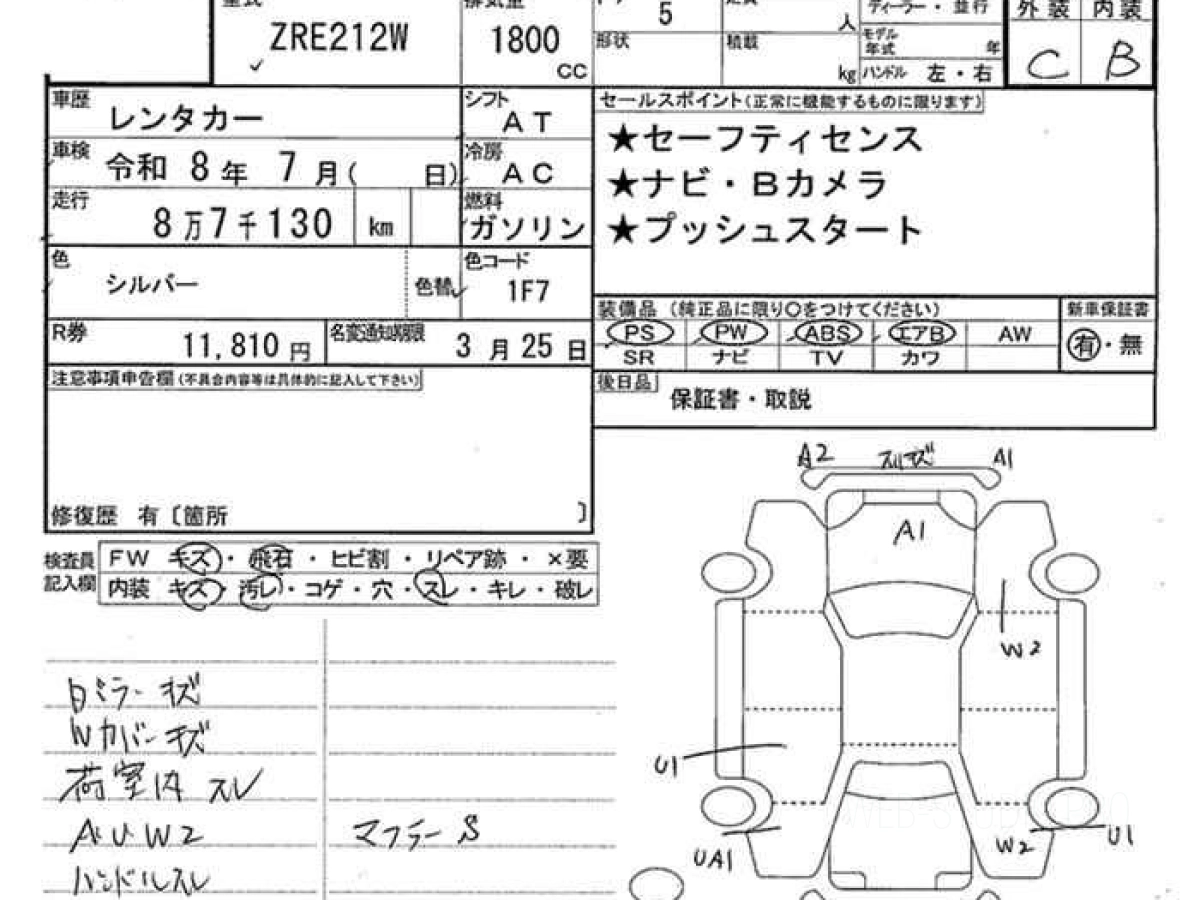 型式 排気量 ドア 5 定員 人 ディーラー・並行 外装 内装
ZRE212W 1800 CC 形状 積載 kg モデル年式 年 C B
ハンドル 左・右
車歴 レンタカー シフト AT セールスポイント(正常に機能するものに限ります)
車検 令和 8年 7月( 日) 冷房 AC ★セーフティセンス
★ナビ・Bカメラ
走行 8万7千130 km 燃料 ガソリン ★プッシュスタート
色 シルバー 色替 色コード 1F7
装備品 (純正品に限り○をつけてください) 新車保証書
PS PW ABS エアB AW 有・無
SR ナビ TV カワ
R券 11,810円 名変通知期限 3月25日
注意事項申告欄(不具合内容等は具体的に記入して下さい)
後日品 保証書・取説
修復歴 有〔箇所 〕
検査員記入欄 FW キズ・飛石・ヒビ割・リペア跡・×要
内装 キズ・汚レ・コゲ・穴・スレ・キレ・破レ
A2 スリキズ A1
A1
W2
U1
UA1
W2 U1
ミラー キズ
Wカバー キズ
荷室内 スレ
A U W2 マフラー S
ハンドルスレ